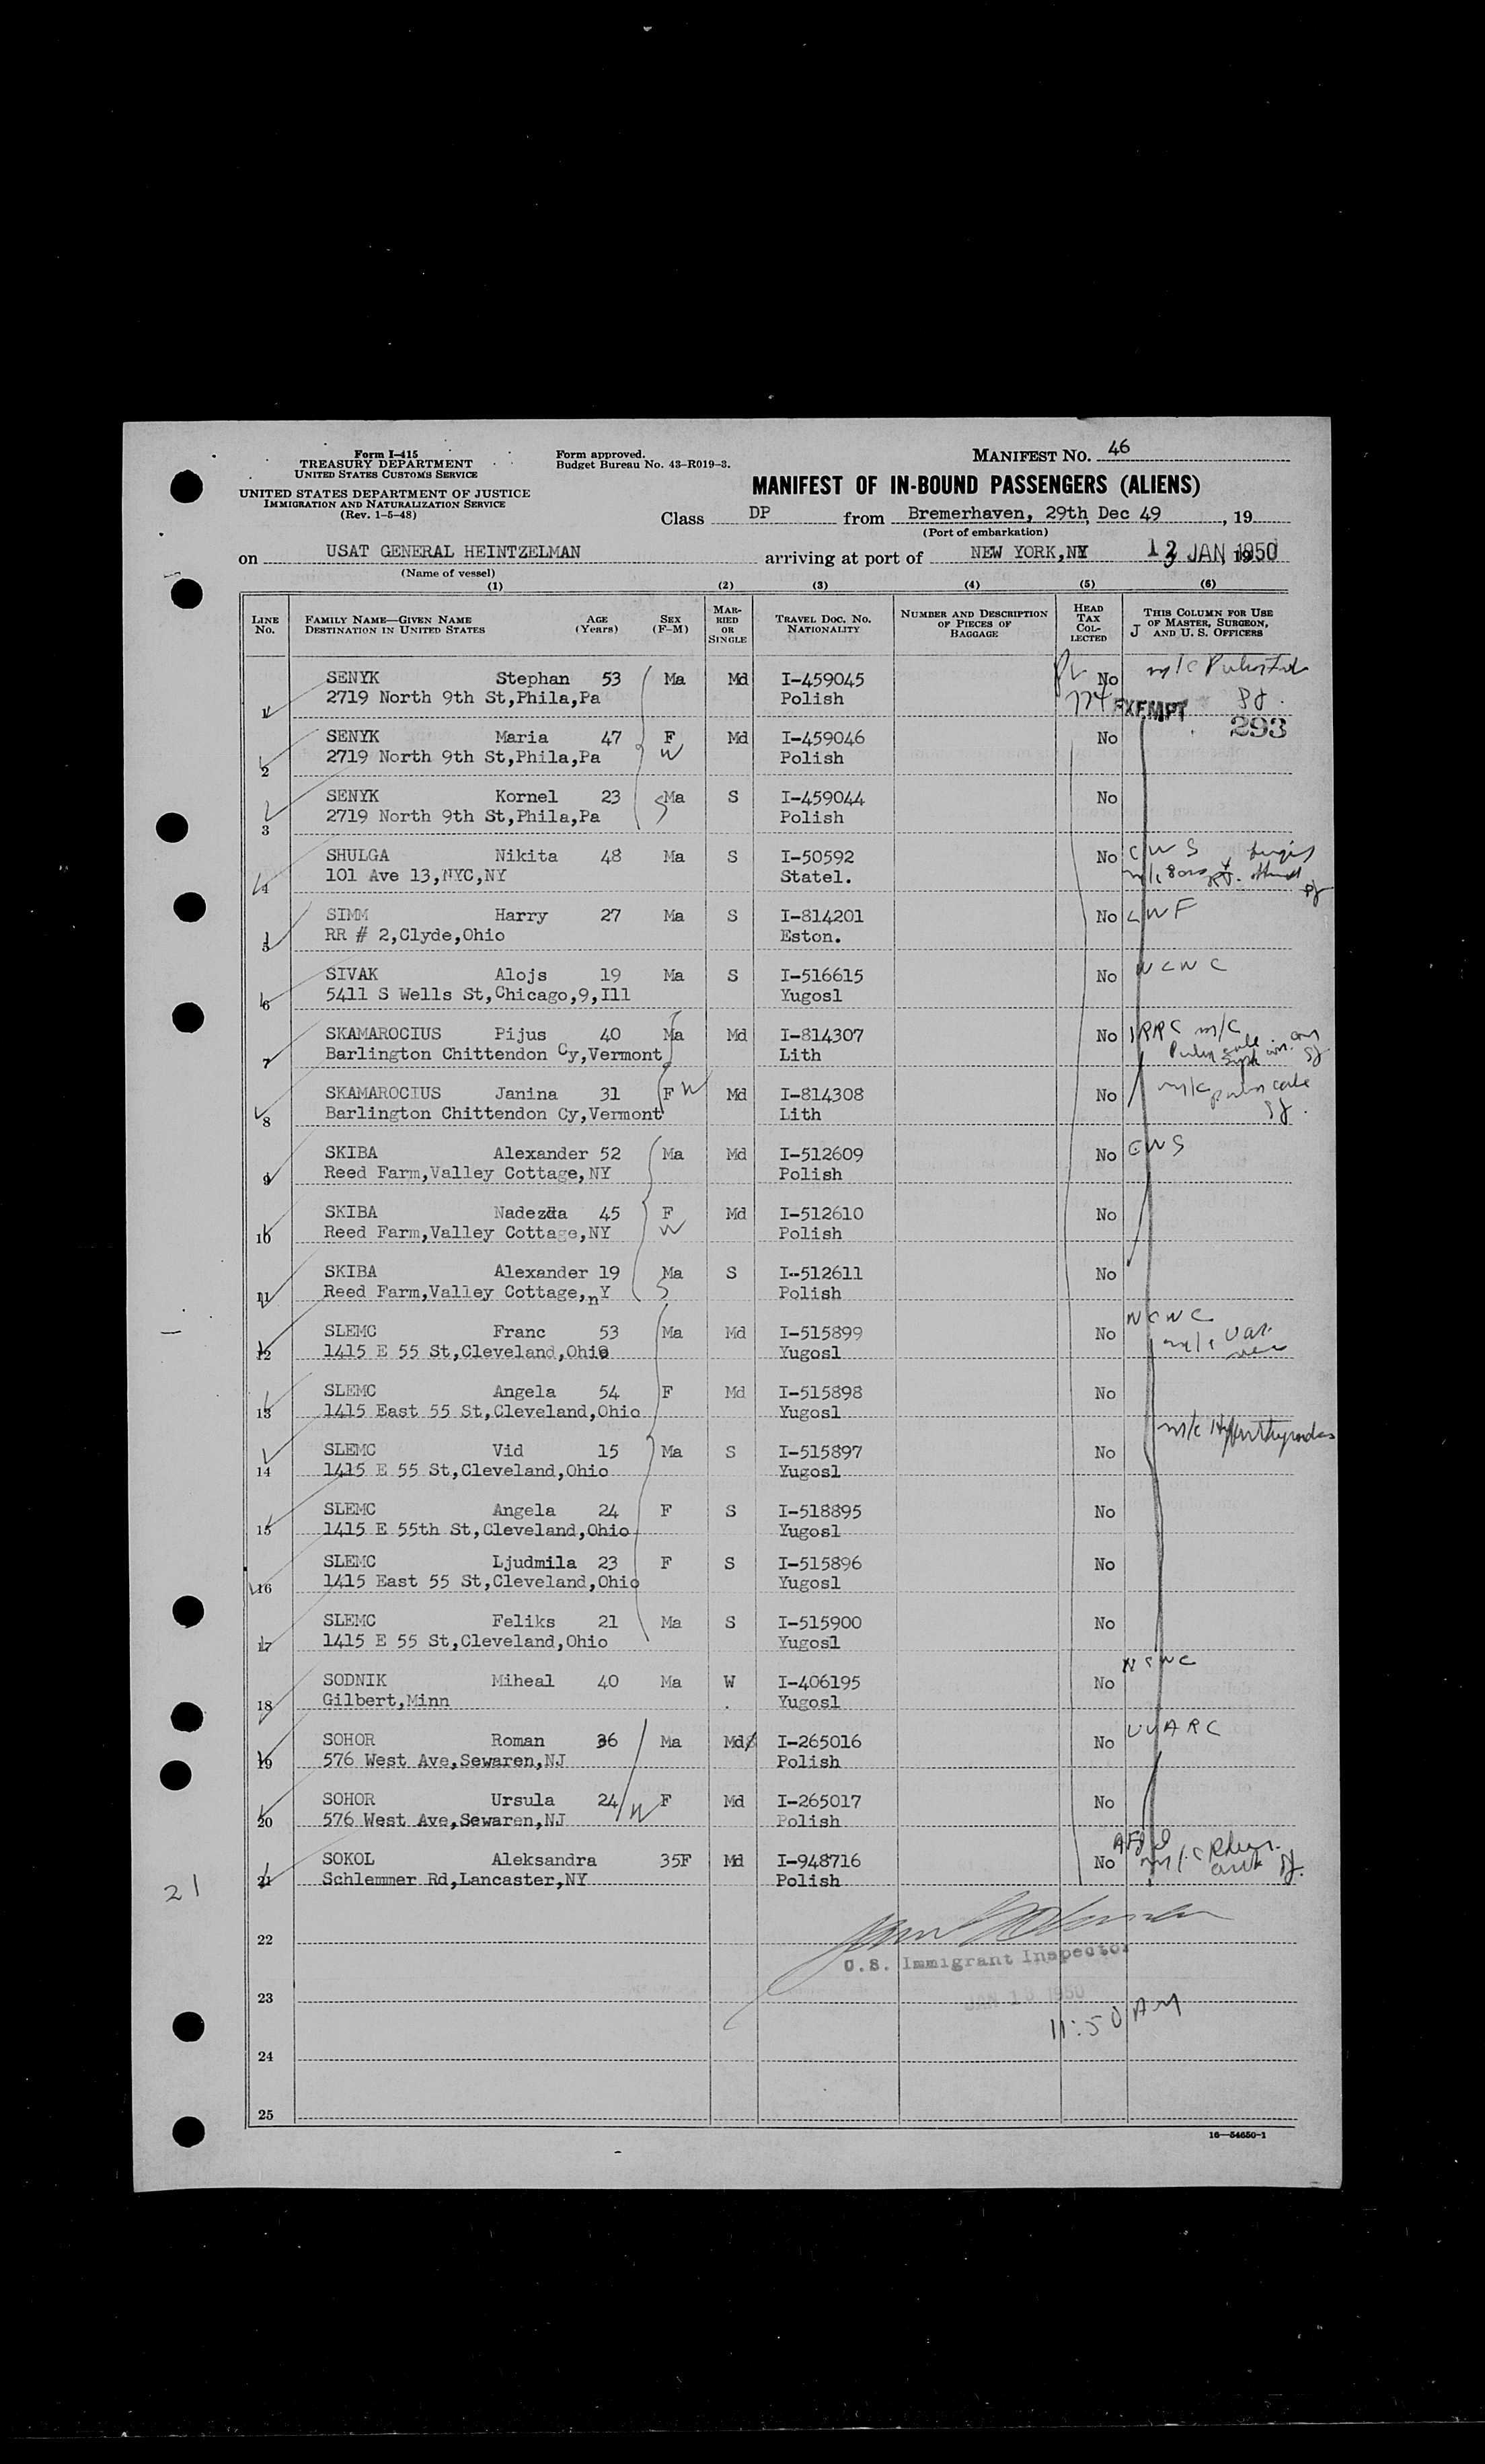 Form I-415
TREASURY DEPARTMENT
UNITED STATES CUSTOMS SERVICE
UNITED STATES DEPARTMENT OF JUSTICE
IMMIGRATION AND NATURALIZATION SERVICE
(Rev. 1-5-48)
Form approved.
Budget Bureau No. 43-R019-3.
MANIFEST NO. 46
MANIFEST OF IN-BOUND PASSENGERS (ALIENS)
Class DP from Bremerhaven, 29th, Dec 49, 19
(Port of embarkation)
on USAT GENERAL HEINTZELMAN arriving at port of NEW YORK,NY JAN 1950
(Name of vessel)
(1) (2) (3) (4) (5) (6)
LINE No. FAMILY NAME—GIVEN NAME DESTINATION IN UNITED STATES AGE (Years) SEX (F-M) MARRIED OR SINGLE TRAVEL DOC. NO. NATIONALITY NUMBER AND DESCRIPTION OF PIECES OF BAGGAGE HEAD TAX COLLECTED THIS COLUMN FOR USE OF MASTER, SURGEON, AND U. S. OFFICERS
1 SENYK Stephan 53 Ma Md I-459045 No m/c
2719 North 9th St,Phila,Pa Polish EXEMPT
293
2 SENYK Maria 47 F Md I-459046 No
2719 North 9th St,Phila,Pa W Polish
3 SENYK Kornel 23 S Ma S I-459044 No
2719 North 9th St,Phila,Pa Polish
4 SHULGA Nikita 48 Ma S I-50592 No CWS
101 Ave 13,NYC,NY Statel.
5 SIMM Harry 27 Ma S I-814201 No LWF
RR # 2,Clyde,Ohio Eston.
6 SIVAK Alojs 19 Ma S I-516615 No NCWC
5411 S Wells St,Chicago,9,Ill Yugosl
7 SKAMAROCIUS Pijus 40 Ma Md I-814307 No m/c
Barlington Chittendon Cy,Vermont Lith
8 SKAMAROCIUS Janina 31 F W Md I-814308 No m/c
Barlington Chittendon Cy,Vermont Lith
9 SKIBA Alexander 52 Ma Md I-512609 No CWS
Reed Farm,Valley Cottage,NY Polish
10 SKIBA Nadezda 45 F Md I-512610 No
Reed Farm,Valley Cottage,NY W Polish
11 SKIBA Alexander 19 Ma S I-512611 No
Reed Farm,Valley Cottage,nY S Polish
12 SLEMC Franc 53 Ma Md I-515899 No NCWC
1415 E 55 St,Cleveland,Ohio Yugosl
13 SLEMC Angela 54 F Md I-515898 No
1415 East 55 St,Cleveland,Ohio Yugosl
14 SLEMC Vid 15 Ma S I-515897 No m/c
1415 E 55 St,Cleveland,Ohio Yugosl
15 SLEMC Angela 24 F S I-518895 No
1415 E 55th St,Cleveland,Ohio Yugosl
16 SLEMC Ljudmila 23 F S I-515896 No
1415 East 55 St,Cleveland,Ohio Yugosl
17 SLEMC Feliks 21 Ma S I-515900 No
1415 E 55 St,Cleveland,Ohio Yugosl
18 SODNIK Miheal 40 Ma W I-406195 No NCWC
Gilbert,Minn Yugosl
19 SOHOR Roman 36 Ma Md I-265016 No UUARC
576 West Ave,Sewaren,NJ Polish
20 SOHOR Ursula 24 W F Md I-265017 No
576 West Ave,Sewaren,NJ Polish
21 21 SOKOL Aleksandra 35F Md I-948716 No
Schlemmer Rd,Lancaster,NY Polish
22
U.S. Immigrant Inspector
23 JAN 13 1950
11:50 AM
24
25
16—54650-1